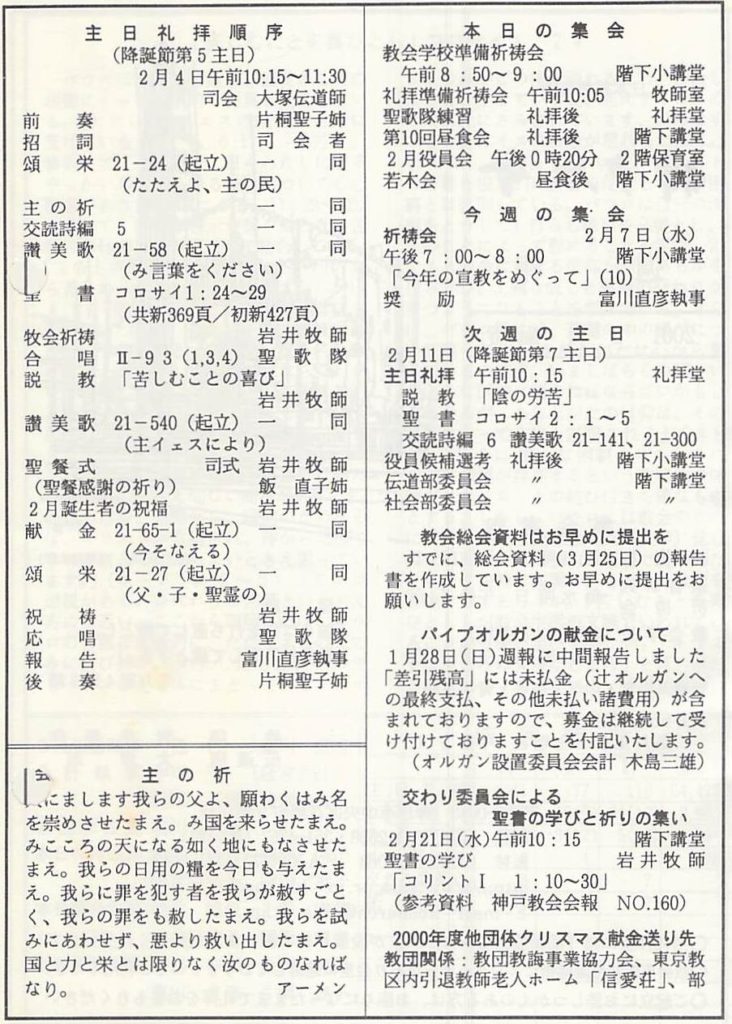 主日礼拝順序
(降誕節第5主日)
2月4日午前10:15～11:30
司会 大塚伝道師
前奏 片桐聖子姉
招詞 司会者
頌栄 21－24（起立） 一同
(たたえよ、主の民)
主の祈 一同
交読詩編 5 一同
讃美歌 21－58（起立） 一同
(み言葉をください)
書 コロサイ1：24～29
(共新369頁／初新427頁)
牧会祈祷 岩井牧師
合唱 Ⅱ－９３(1,3,4) 聖歌隊
説教 「苦しむことの喜び」
岩井牧師
讃美歌 21－540（起立） 一同
(主イェスにより)
聖餐式 司式 岩井牧師
(聖餐感謝の祈り) 飯 直子姉
2月誕生者の祝福 岩井牧師
献金 21-65-1（起立） 一同
(今そなえる)
頌栄 21－27（起立） 一同
(父・子・聖霊の)
祝祷 岩井牧師
応唱 聖歌隊
報告 富川直彦執事
後奏 片桐聖子姉
主の祈
にまします我らの父よ、願わくはみ名
を崇めさせたまえ。み国を来らせたまえ。
みこころの天になる如く地にもなさせた
まえ。我らの日用の糧を今日も与えたま
え。我らに罪を犯す者を我らが赦すごと
く、我らの罪をも赦したまえ。我らを試
みにあわせず、悪より救い出したまえ。
国と力と栄とは限りなく汝のものなれば
なり。 アーメン
本日の集会
教会学校準備祈祷会
午前8：50～9：00 階下小講堂
礼拝準備祈祷会 午前10:05 牧師室
聖歌隊練習 礼拝後 礼拝堂
第10回昼食会 礼拝後 階下講堂
2月役員会 午後0時20分 2階保育室
若木会 昼食後 階下小講堂
今週の集会
祈祷会 2月7日（水）
午後7：00～8：00 階下小講堂
「今年の宣教をめぐって」(10)
奨励 富川直彦執事
次週の主日
2月11日（降誕節第7主日）
主日礼拝 午前10：15 礼拝堂
説教 「陰の労苦」
聖書 コロサイ2：1～5
交読詩編 6 讃美歌 21-141、21-300
役員候補選考 礼拝後 階下小講堂
伝道部委員会 〃 階下講堂
社会部委員会 〃 〃
教会総会資料はお早めに提出を
すでに、総会資料（3月25日）の報告
書を作成しています。お早めに提出をお
願いします。
パイプオルガンの献金について
1月28日(日)週報に中間報告しました
「差引残高」には未払金（辻オルガンへ
の最終支払、その他未払い諸費用）が含
まれておりますので、募金は継続して受
け付けておりますことを付記いたします。
(オルガン設置委員会会計 木島三雄)
交わり委員会による
聖書の学びと祈りの集い
2月21日(水)午前10：15 階下講堂
聖書の学び 岩井牧師
「コリントⅠ 1：10～30」
(参考資料 神戸教会会報 NO.160)
2000年度他団体クリスマス献金送り先
教団関係：教団教誨事業協力会、東京教
区内引退教師老人ホーム「信愛荘」、部